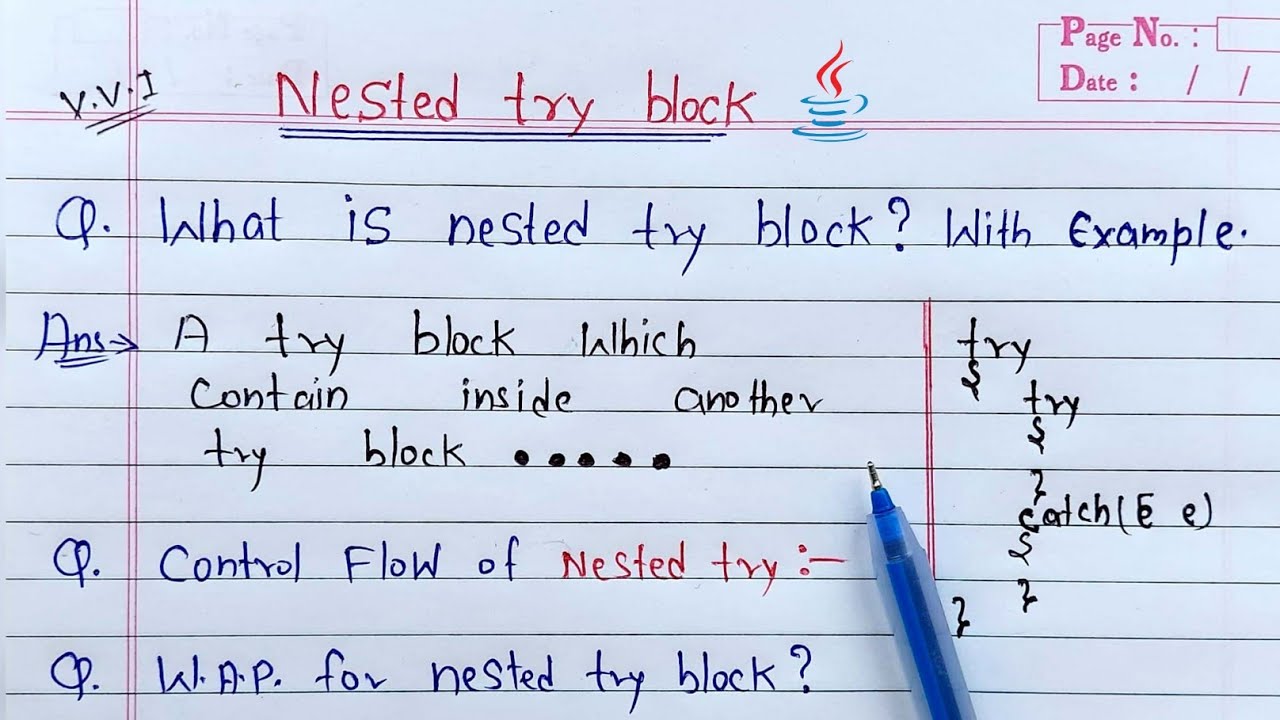 Page No. :
Date : / /
V.V.I
Nested try block
Q. What is nested try block? With Example.
Ans→ A try block which
contain inside another
try block •••••
try
{
try
{
}
catch(E e)
{
}
}
Q. Control Flow of Nested try:-
Q. W.A.P. for nested try block?